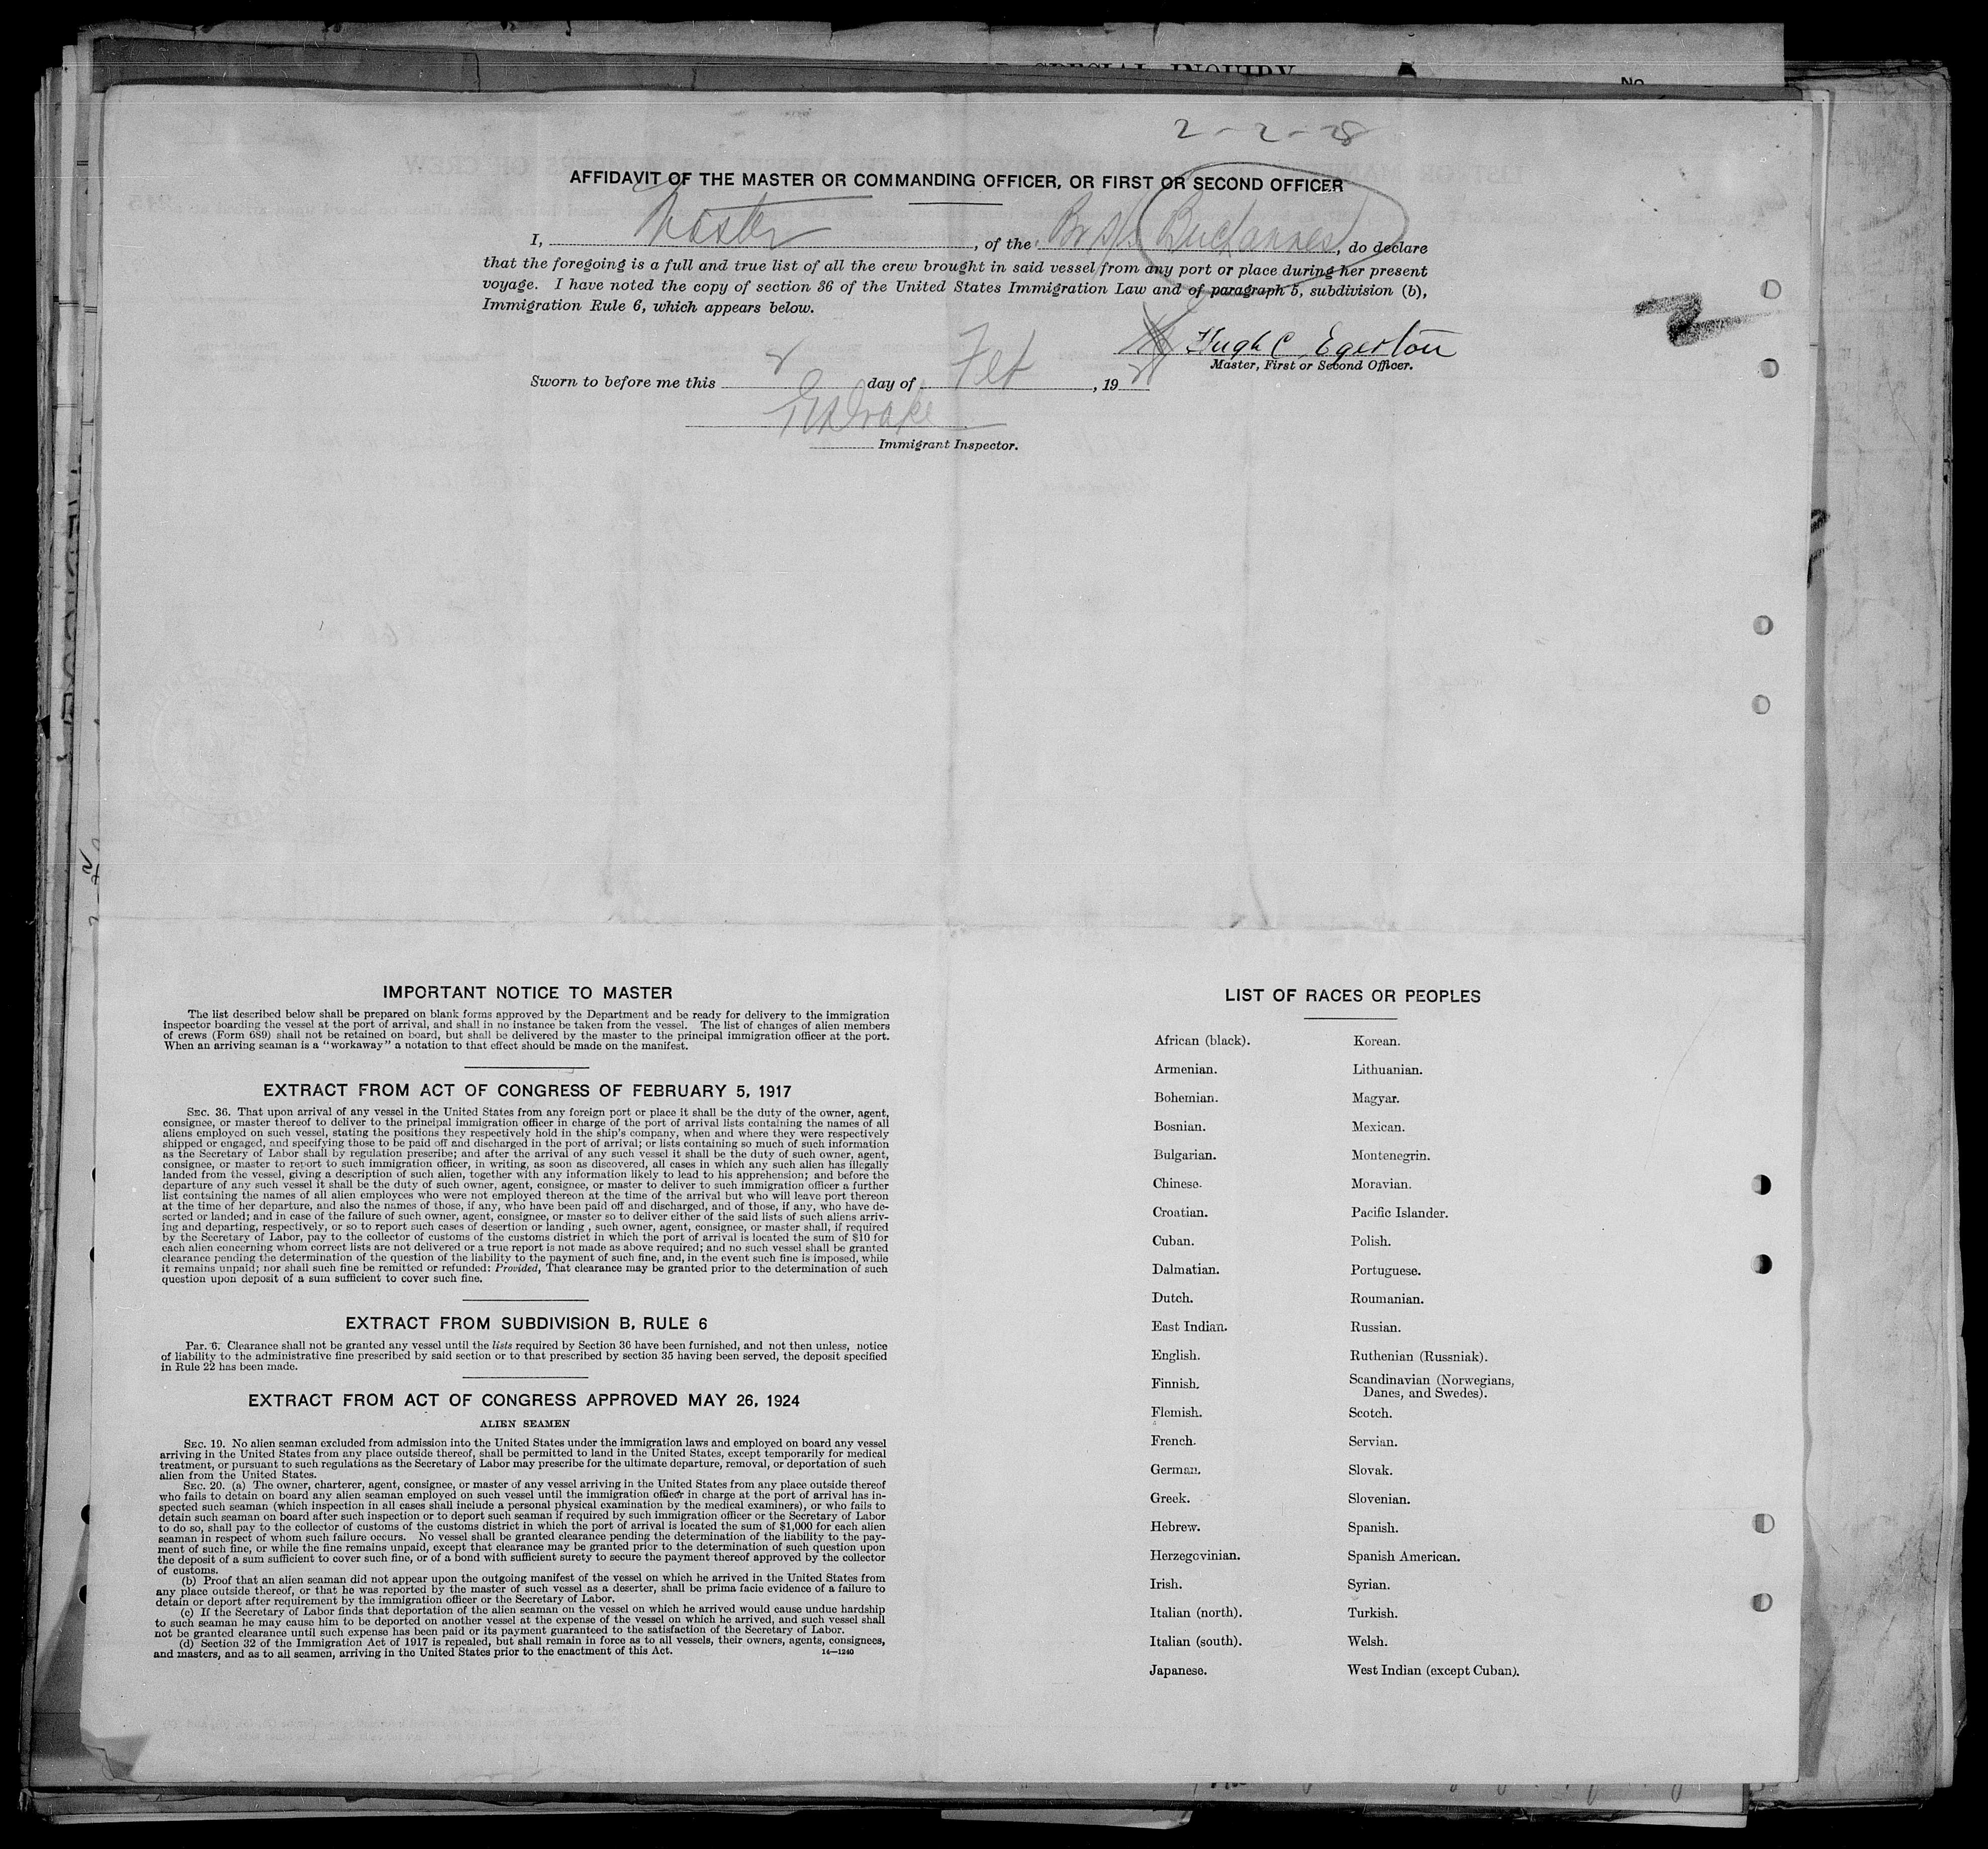 SPECIAL INQUIRY
No
2-2-28
AFFIDAVIT OF THE MASTER OR COMMANDING OFFICER, OR FIRST OR SECOND OFFICER
I, Master, of the Br s/s Buchanness, do declare
that the foregoing is a full and true list of all the crew brought in said vessel from any port or place during her present
voyage. I have noted the copy of section 36 of the United States Immigration Law and of paragraph 5, subdivision (b),
Immigration Rule 6, which appears below.
Hugh C Egerton
Master, First or Second Officer.
Sworn to before me this 2 day of Feb, 19
Drake
Immigrant Inspector.
IMPORTANT NOTICE TO MASTER
The list described below shall be prepared on blank forms approved by the Department and be ready for delivery to the immigration
inspector boarding the vessel at the port of arrival, and shall in no instance be taken from the vessel. The list of changes of alien members
of crews (Form 689) shall not be retained on board, but shall be delivered by the master to the principal immigration officer at the port.
When an arriving seaman is a "workaway" a notation to that effect should be made on the manifest.
EXTRACT FROM ACT OF CONGRESS OF FEBRUARY 5, 1917
SEC. 36. That upon arrival of any vessel in the United States from any foreign port or place it shall be the duty of the owner, agent,
consignee, or master thereof to deliver to the principal immigration officer in charge of the port of arrival lists containing the names of all
aliens employed on such vessel, stating the positions they respectively hold in the ship's company, when and where they were respectively
shipped or engaged, and specifying those to be paid off and discharged in the port of arrival; or lists containing so much of such information
as the Secretary of Labor shall by regulation prescribe; and after the arrival of any such vessel it shall be the duty of such owner, agent,
consignee, or master to report to such immigration officer, in writing, as soon as discovered, all cases in which any such alien has illegally
landed from the vessel, giving a description of such alien, together with any information likely to lead to his apprehension; and before the
departure of any such vessel it shall be the duty of such owner, agent, consignee, or master to deliver to such immigration officer a further
list containing the names of all alien employees who were not employed thereon at the time of the arrival but who will leave port thereon
at the time of her departure, and also the names of those, if any, who have been paid off and discharged, and of those, if any, who have de-
serted or landed; and in case of the failure of such owner, agent, consignee, or master so to deliver either of the said lists of such aliens arriv-
ing and departing, respectively, or so to report such cases of desertion or landing , such owner, agent, consignee, or master shall, if required
by the Secretary of Labor, pay to the collector of customs of the customs district in which the port of arrival is located the sum of $10 for
each alien concerning whom correct lists are not delivered or a true report is not made as above required; and no such vessel shall be granted
clearance pending the determination of the question of the liability to the payment of such fine, and, in the event such fine is imposed, while
it remains unpaid; nor shall such fine be remitted or refunded: Provided, That clearance may be granted prior to the determination of such
question upon deposit of a sum sufficient to cover such fine.
EXTRACT FROM SUBDIVISION B, RULE 6
Par. 6. Clearance shall not be granted any vessel until the lists required by Section 36 have been furnished, and not then unless, notice
of liability to the administrative fine prescribed by said section or to that prescribed by section 35 having been served, the deposit specified
in Rule 22 has been made.
EXTRACT FROM ACT OF CONGRESS APPROVED MAY 26, 1924
ALIEN SEAMEN
SEC. 19. No alien seaman excluded from admission into the United States under the immigration laws and employed on board any vessel
arriving in the United States from any place outside thereof, shall be permitted to land in the United States, except temporarily for medical
treatment, or pursuant to such regulations as the Secretary of Labor may prescribe for the ultimate departure, removal, or deportation of such
alien from the United States.
SEC. 20. (a) The owner, charterer, agent, consignee, or master of any vessel arriving in the United States from any place outside thereof
who fails to detain on board any alien seaman employed on such vessel until the immigration officer in charge at the port of arrival has in-
spected such seaman (which inspection in all cases shall include a personal physical examination by the medical examiners), or who fails to
detain such seaman on board after such inspection or to deport such seaman if required by such immigration officer or the Secretary of Labor
to do so, shall pay to the collector of customs of the customs district in which the port of arrival is located the sum of $1,000 for each alien
seaman in respect of whom such failure occurs. No vessel shall be granted clearance pending the determination of the liability to the pay-
ment of such fine, or while the fine remains unpaid, except that clearance may be granted prior to the determination of such question upon
the deposit of a sum sufficient to cover such fine, or of a bond with sufficient surety to secure the payment thereof approved by the collector
of customs.
(b) Proof that an alien seaman did not appear upon the outgoing manifest of the vessel on which he arrived in the United States from
any place outside thereof, or that he was reported by the master of such vessel as a deserter, shall be prima facie evidence of a failure to
detain or deport after requirement by the immigration officer or the Secretary of Labor.
(c) If the Secretary of Labor finds that deportation of the alien seaman on the vessel on which he arrived would cause undue hardship
to such seaman he may cause him to be deported on another vessel at the expense of the vessel on which he arrived, and such vessel shall
not be granted clearance until such expense has been paid or its payment guaranteed to the satisfaction of the Secretary of Labor.
(d) Section 32 of the Immigration Act of 1917 is repealed, but shall remain in force as to all vessels, their owners, agents, consignees,
and masters, and as to all seamen, arriving in the United States prior to the enactment of this Act. 14—1240
LIST OF RACES OR PEOPLES
African (black).
Armenian.
Bohemian.
Bosnian.
Bulgarian.
Chinese.
Croatian.
Cuban.
Dalmatian.
Dutch.
East Indian.
English.
Finnish.
Flemish.
French.
German.
Greek.
Hebrew.
Herzegovinian.
Irish.
Italian (north).
Italian (south).
Japanese.
Korean.
Lithuanian.
Magyar.
Mexican.
Montenegrin.
Moravian.
Pacific Islander.
Polish.
Portuguese.
Roumanian.
Russian.
Ruthenian (Russniak).
Scandinavian (Norwegians,
Danes, and Swedes).
Scotch.
Servian.
Slovak.
Slovenian.
Spanish.
Spanish American.
Syrian.
Turkish.
Welsh.
West Indian (except Cuban).